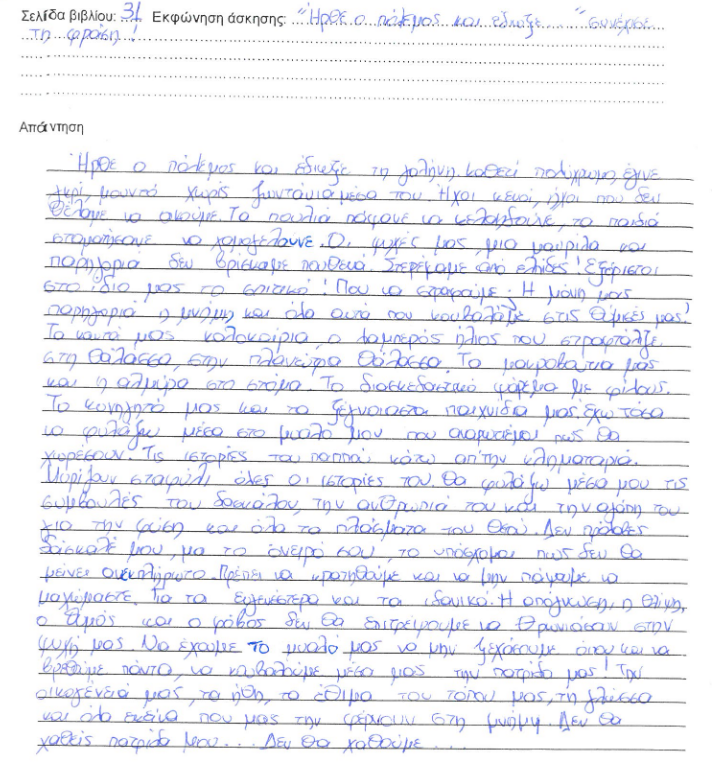 Σελίδα βιβλίου: 31 Εκφώνηση άσκησης: "Ήρθε ο πόλεμος και έδιωξε... " συνέχισε
τη φράση!
Απάντηση
Ήρθε ο πόλεμος και έδιωξε τη γαλήνη. Καθετί πολύχρωμο, έγινε
γκρί, μουντό χωρίς ζωντάνια μέσα του. Ήχοι κενοί, ήχοι που δεν
θέλαμε να ακούμε. Τα πουλιά πάψανε να κελαηδούνε, τα παιδιά
σταματήσανε να χαμογελάνε. Οι ψυχές μας, μια μαυρίλα και
παρηγοριά δεν βρίσκαμε πουθενά. Στερέψαμε από ελπίδες! Εξόριστοι
στο ίδιο μας το σπιτικό! Που να στραφούμε; Η μόνη μας
παρηγοριά η μνήμη και όλα αυτά που κουβαλάμε στις θύμισές μας!
Τα καυτά μας καλοκαίρια, ο λαμπερός ήλιος που στραφτάλιζε
στη θάλασσα, στην πλανεύτρα θάλασσα. Τα μακροβούτια μας
και η αλμύρα στο στόμα. Το διασκεδαστικό ψάρεμα με φίλους.
Το κυνηγητό μας και τα ξέγνοιαστα παιχνίδια μας. Έχω τόσα
να φυλάξω μέσα στο μυαλό μου που αναρωτιέμαι πως θα
χωρέσουν. Τις ιστορίες του παππού κάτω απ'την κληματαριά.
Μυρίζουν σταφύλι όλες οι ιστορίες του. Θα φυλάξω μέσα μου τις
συμβουλές του δασκάλου, την ανθρωπιά του και την αγάπη του
για την φύση και όλα τα πλάσματα του Θεού. Δεν πρόλαβες
δάσκαλέ μου, μα το όνειρό σου, το υπόσχομαι πως δεν θα
μείνει ανεκπλήρωτο. Πρέπει να κρατηθούμε και να μην πάψουμε να
μαχόμαστε. Για τα ευγενέστερα και τα ιδανικά. Η απόγνωση, η θλίψη,
ο θυμός και ο φόβος δεν θα επιτρέψουμε να θρονιάσουν στην
ψυχή μας. Να έχουμε το μυαλό μας να μην ξεχάσουμε όπου και να
βρεθούμε πάντα, να κουβαλούμε μέσα μας την πατρίδα μας! Την
οικογένειά μας, τα ήθη, τα έθιμα του τόπου μας, τη γλώσσα
και όλα εκείνα που μας την φέρνουν στη μνήμη. Δεν θα
χαθείς πατρίδα μου... Δεν θα χαθούμε...